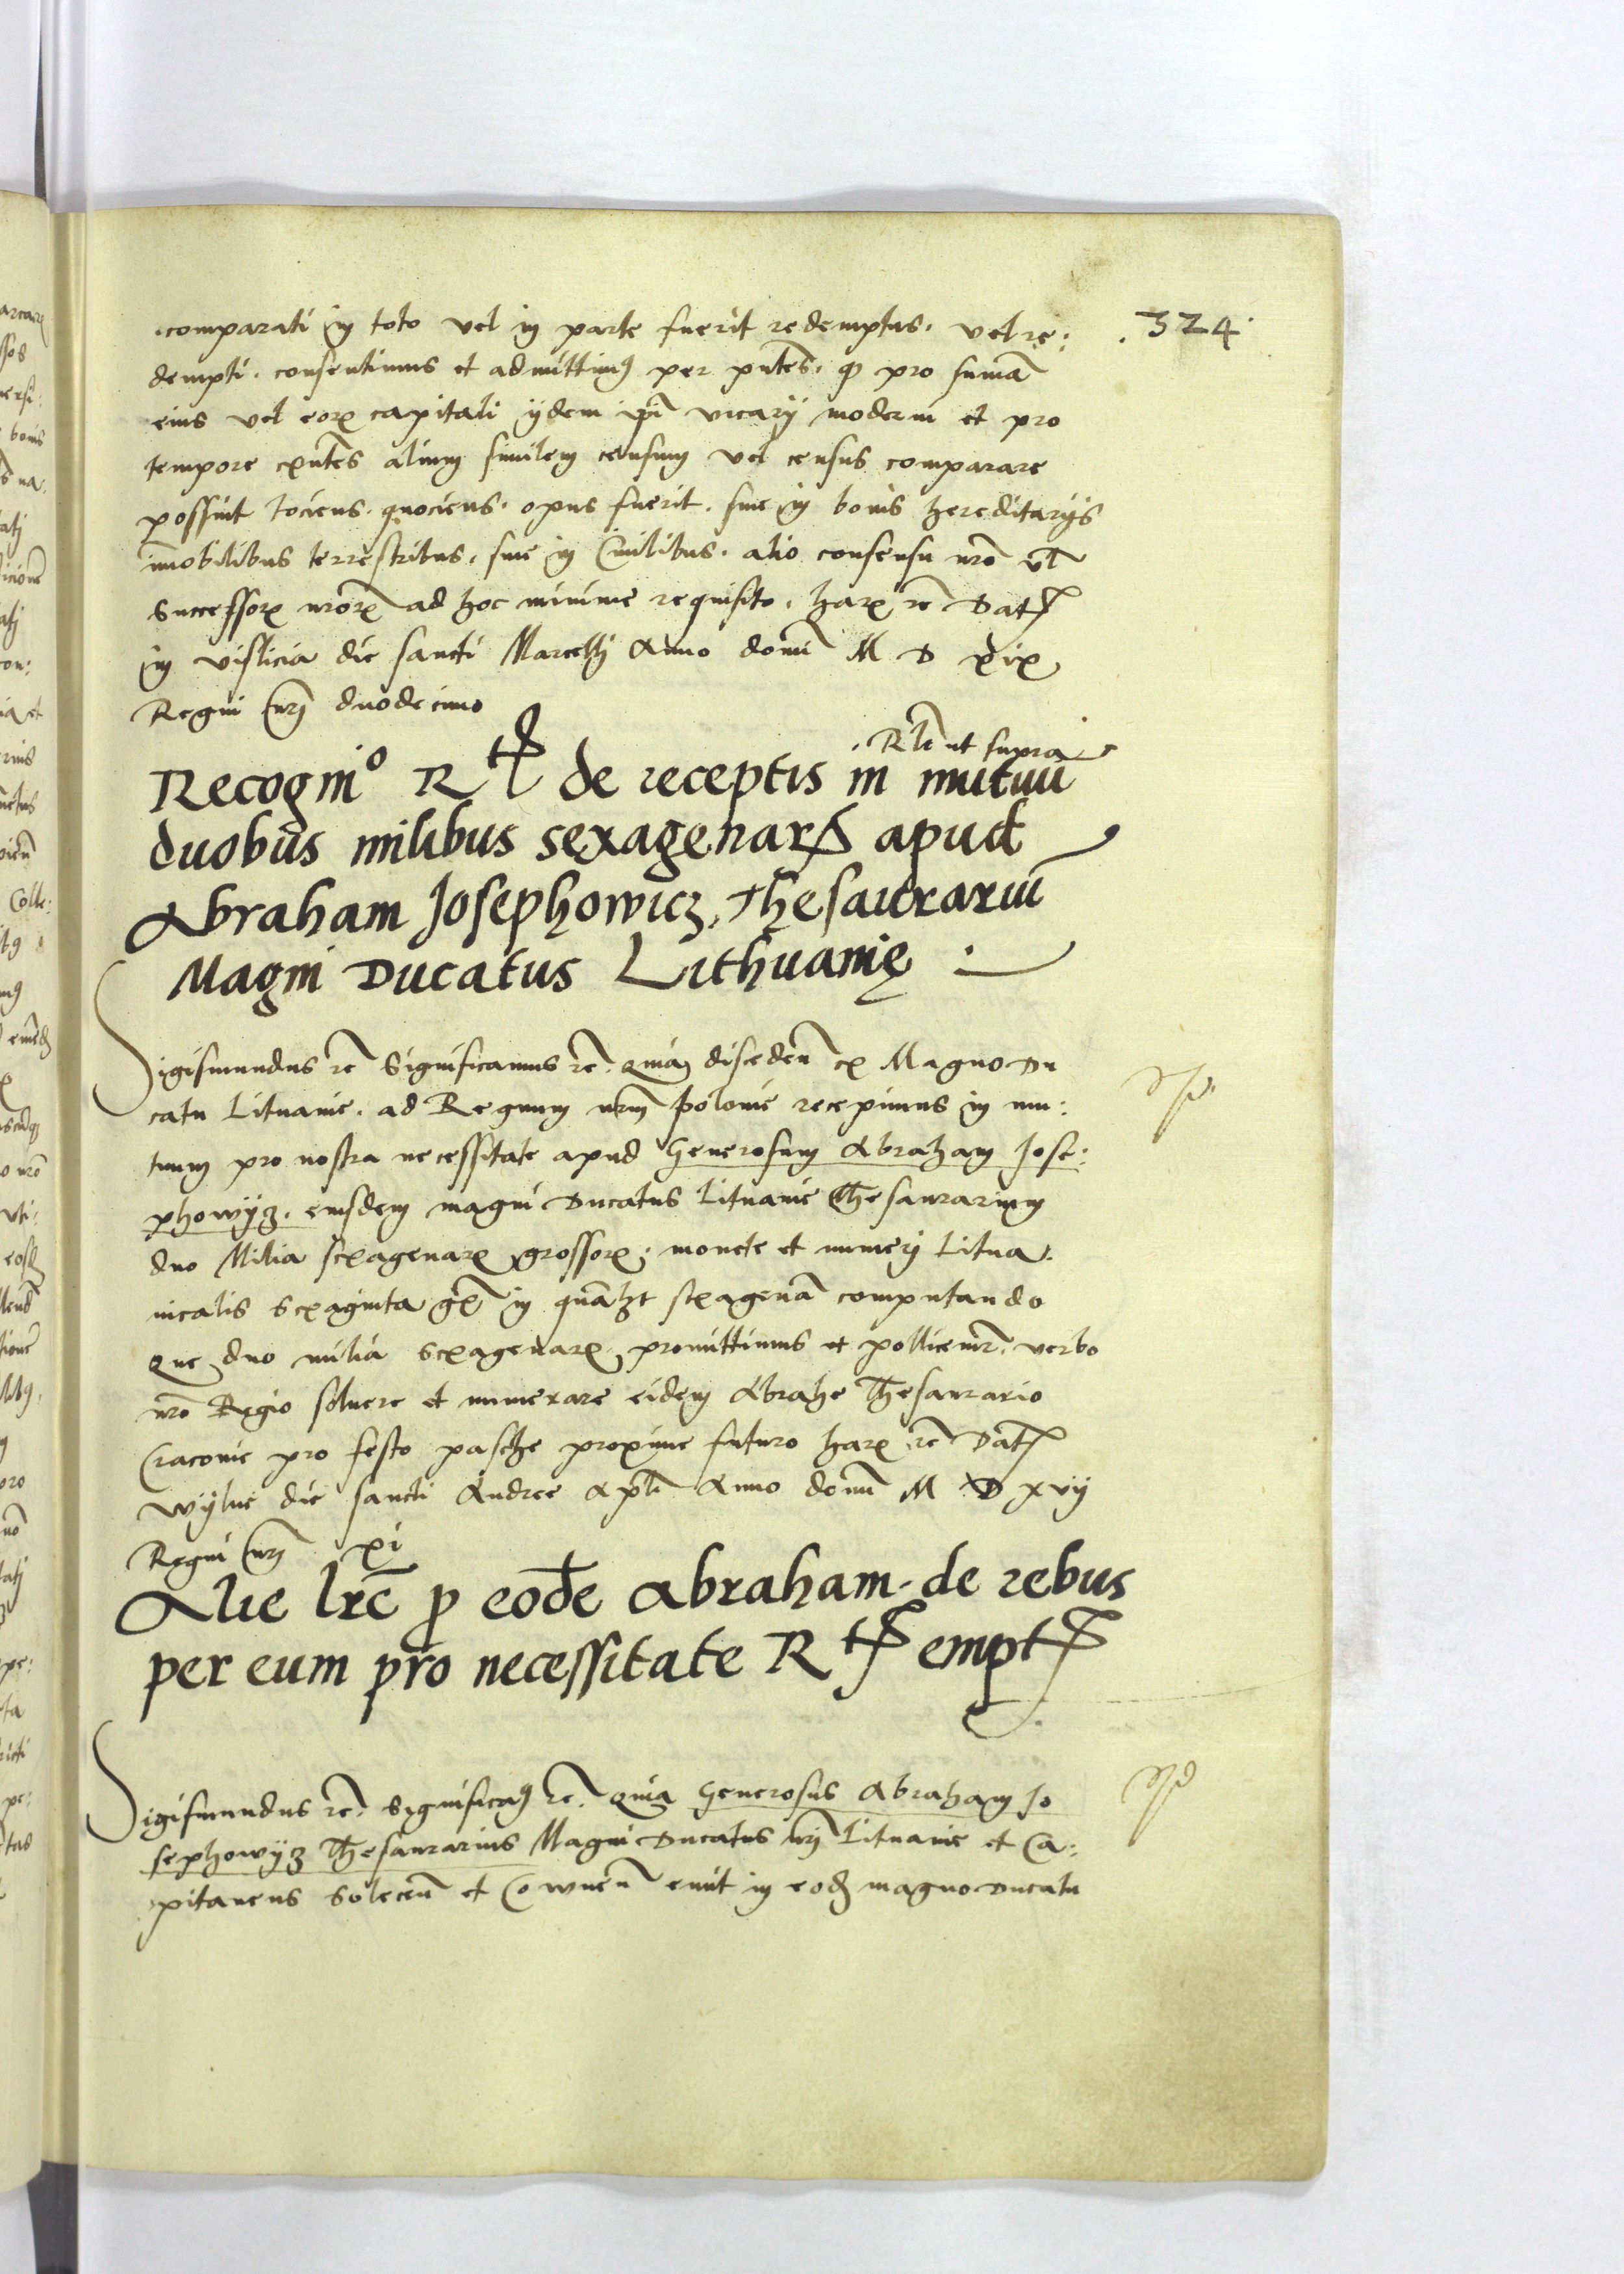 .324.
comparati in toto vel in parte fuerit redemptus. vel re:
dempti. consentimus et admittimꝰ per pn̄tes. ꝙ pro sum̄a
eius vel eorꝝ capitali ijdem ip̄i vicarij moderni et pro
tempore exn̄tes alium similem censum vel census comparare
possint tociens. quociens. opus fuerit. siue in bonis hereditarijs
im̄obilibus terrestribus. siue in Ciuilibus. alio consensu nr̄o vl̄
Successorꝝ nr̄orꝝ ad hoc minime requisito. harꝝ rc̄ Datꝭ
in vislicia die sancti Marcelli Anno domī M D xix
Regni nr̄j duodecimo
. Rl̄e ut supra
Recogniº Rtꝭ de receptis in mutuū
duobus milibus sexagenarꝝ apud
Abraham Josephowicz. Thesaurariū
Magni Ducatus Lithuanię
Sigismundus rc̄ Significamus rc̄. Quia discedeñ ex Magno Du
catu Lituanie. ad Regnum nr̄m polonie recepimus in mu:
tuum pro nostra necessitate apud Generosum Abraham Jose:
phowÿz. eiusdem magni Ducatus Lituanie Thesaurarium
duo Milia sexagenarꝝ grossorꝝ. monete et numeri Litua.
nicalis Sexaginta gr̄ in qual̄ꝫt sexagenā computando
Que duo milia Sexagenarꝝ promittimus et pollicemr̄. verbo
nr̄o Regio soluere et numerare eidem Abrahe Thesaurario
Cracovie pro festo pasche proxime futuro harꝝ rc̄ Datꝭ
Wÿlne die sancti Andree Ap̄li Anno domī M D xvij
Regni nr̄j xi
Alie lr̄e ꝓ eodē Abraham. de rebus
per eum pro necessitate Rtꝭ emptꝭ
Sigismundus rc̄. Significamꝰ rc̄. Quia Generosus Abraham Jo
sephowÿz Thesaurarius Magni Ducatus nr̄j Lituanie et Ca:
pitaneus Soleceñ et Cowneñ emit in eodꝫ magno Ducatu